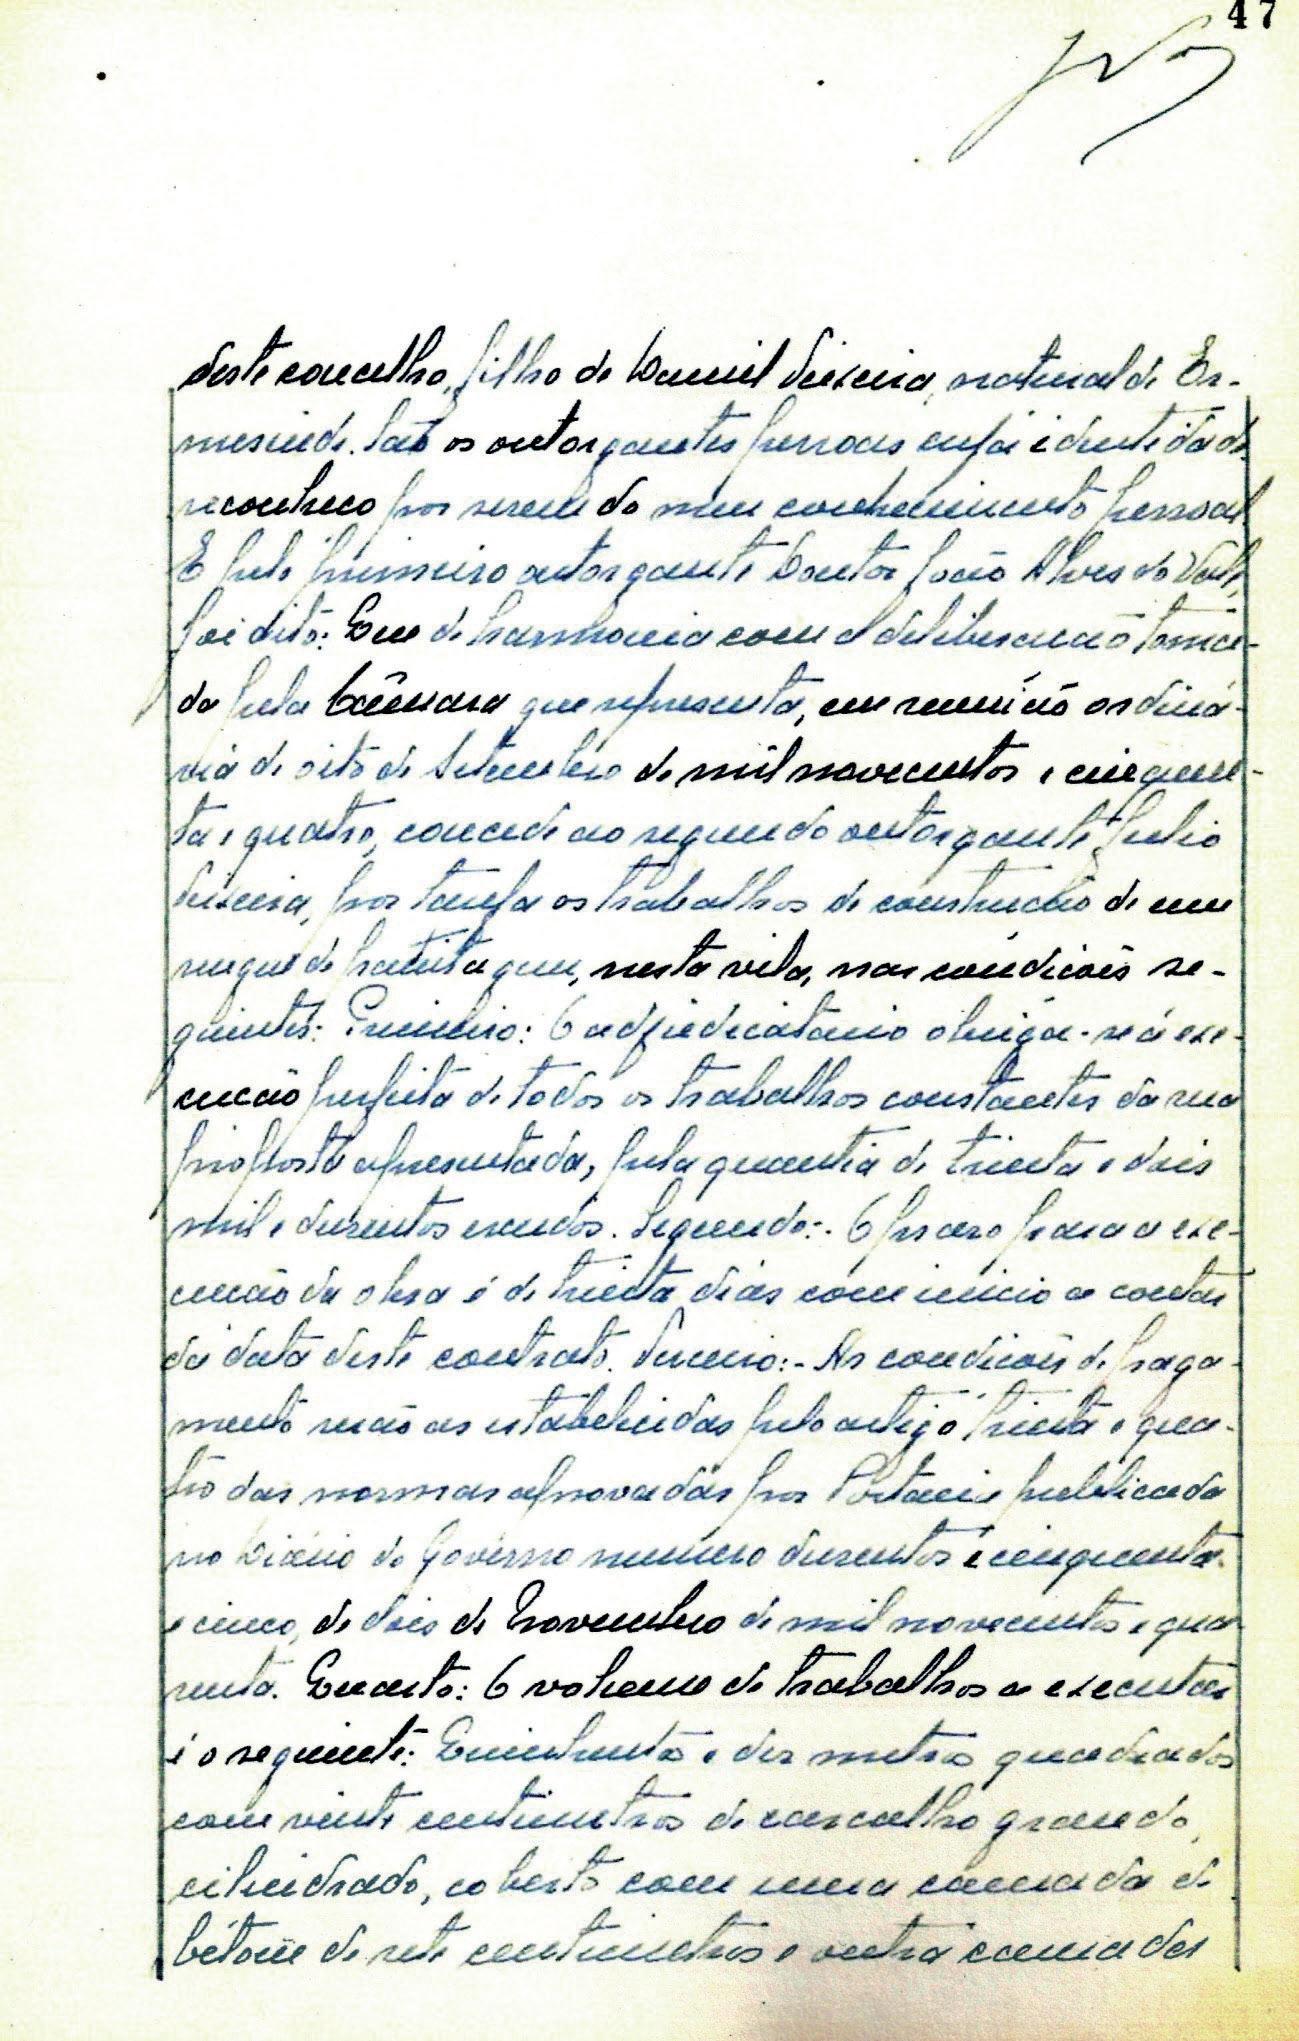 47
deste concelho, filho de Daniel Teixeira, natural de Er-
mesinde. São os outorgantes pessoas cuja identidade
reconheço por serem do meu conhecimento pessoal
E pelo primeiro outorgante Doutor João Alves do Vale,
foi dito: Que de harmonia com a deliberação toma-
da pela Câmara que representa, em reunião ordiná-
ria de oito de Setembro de mil novecentos e cinquen-
ta e quatro, concede ao segundo outorgante Julio
Teixeira, por tarefa os trabalhos de construção de um
ringue de patinagem, nesta vila, nas condições se-
guintes: Primeiro: O adjudicatario obriga-se á exe-
cução perfeita de todos os trabalhos constantes da sua
proposta apresentada, pela quantia de trinta e dois
mil e duzentos escudos. Segundo:- O prazo para a exe-
cução da obra é de trinta dias com inicio a contar
da data deste contrato. Terceiro:- As condições de paga-
mento serão as estabelecidas pelo artigo trinta e qua-
tro das normas aprovadas por Portaria publicada
no Diário do Govêrno numero duzentos e cinquenta
e cinco, de dois de Novembro de mil novecentos e qua-
renta. Quarto: O volume de trabalhos a executar
é o seguinte: Quinhentos e dez metros quadrados
com vinte centimetros de cascalho graudo,
cilindrado, coberto com uma camada de
bétom de sete centimetros e outra camada